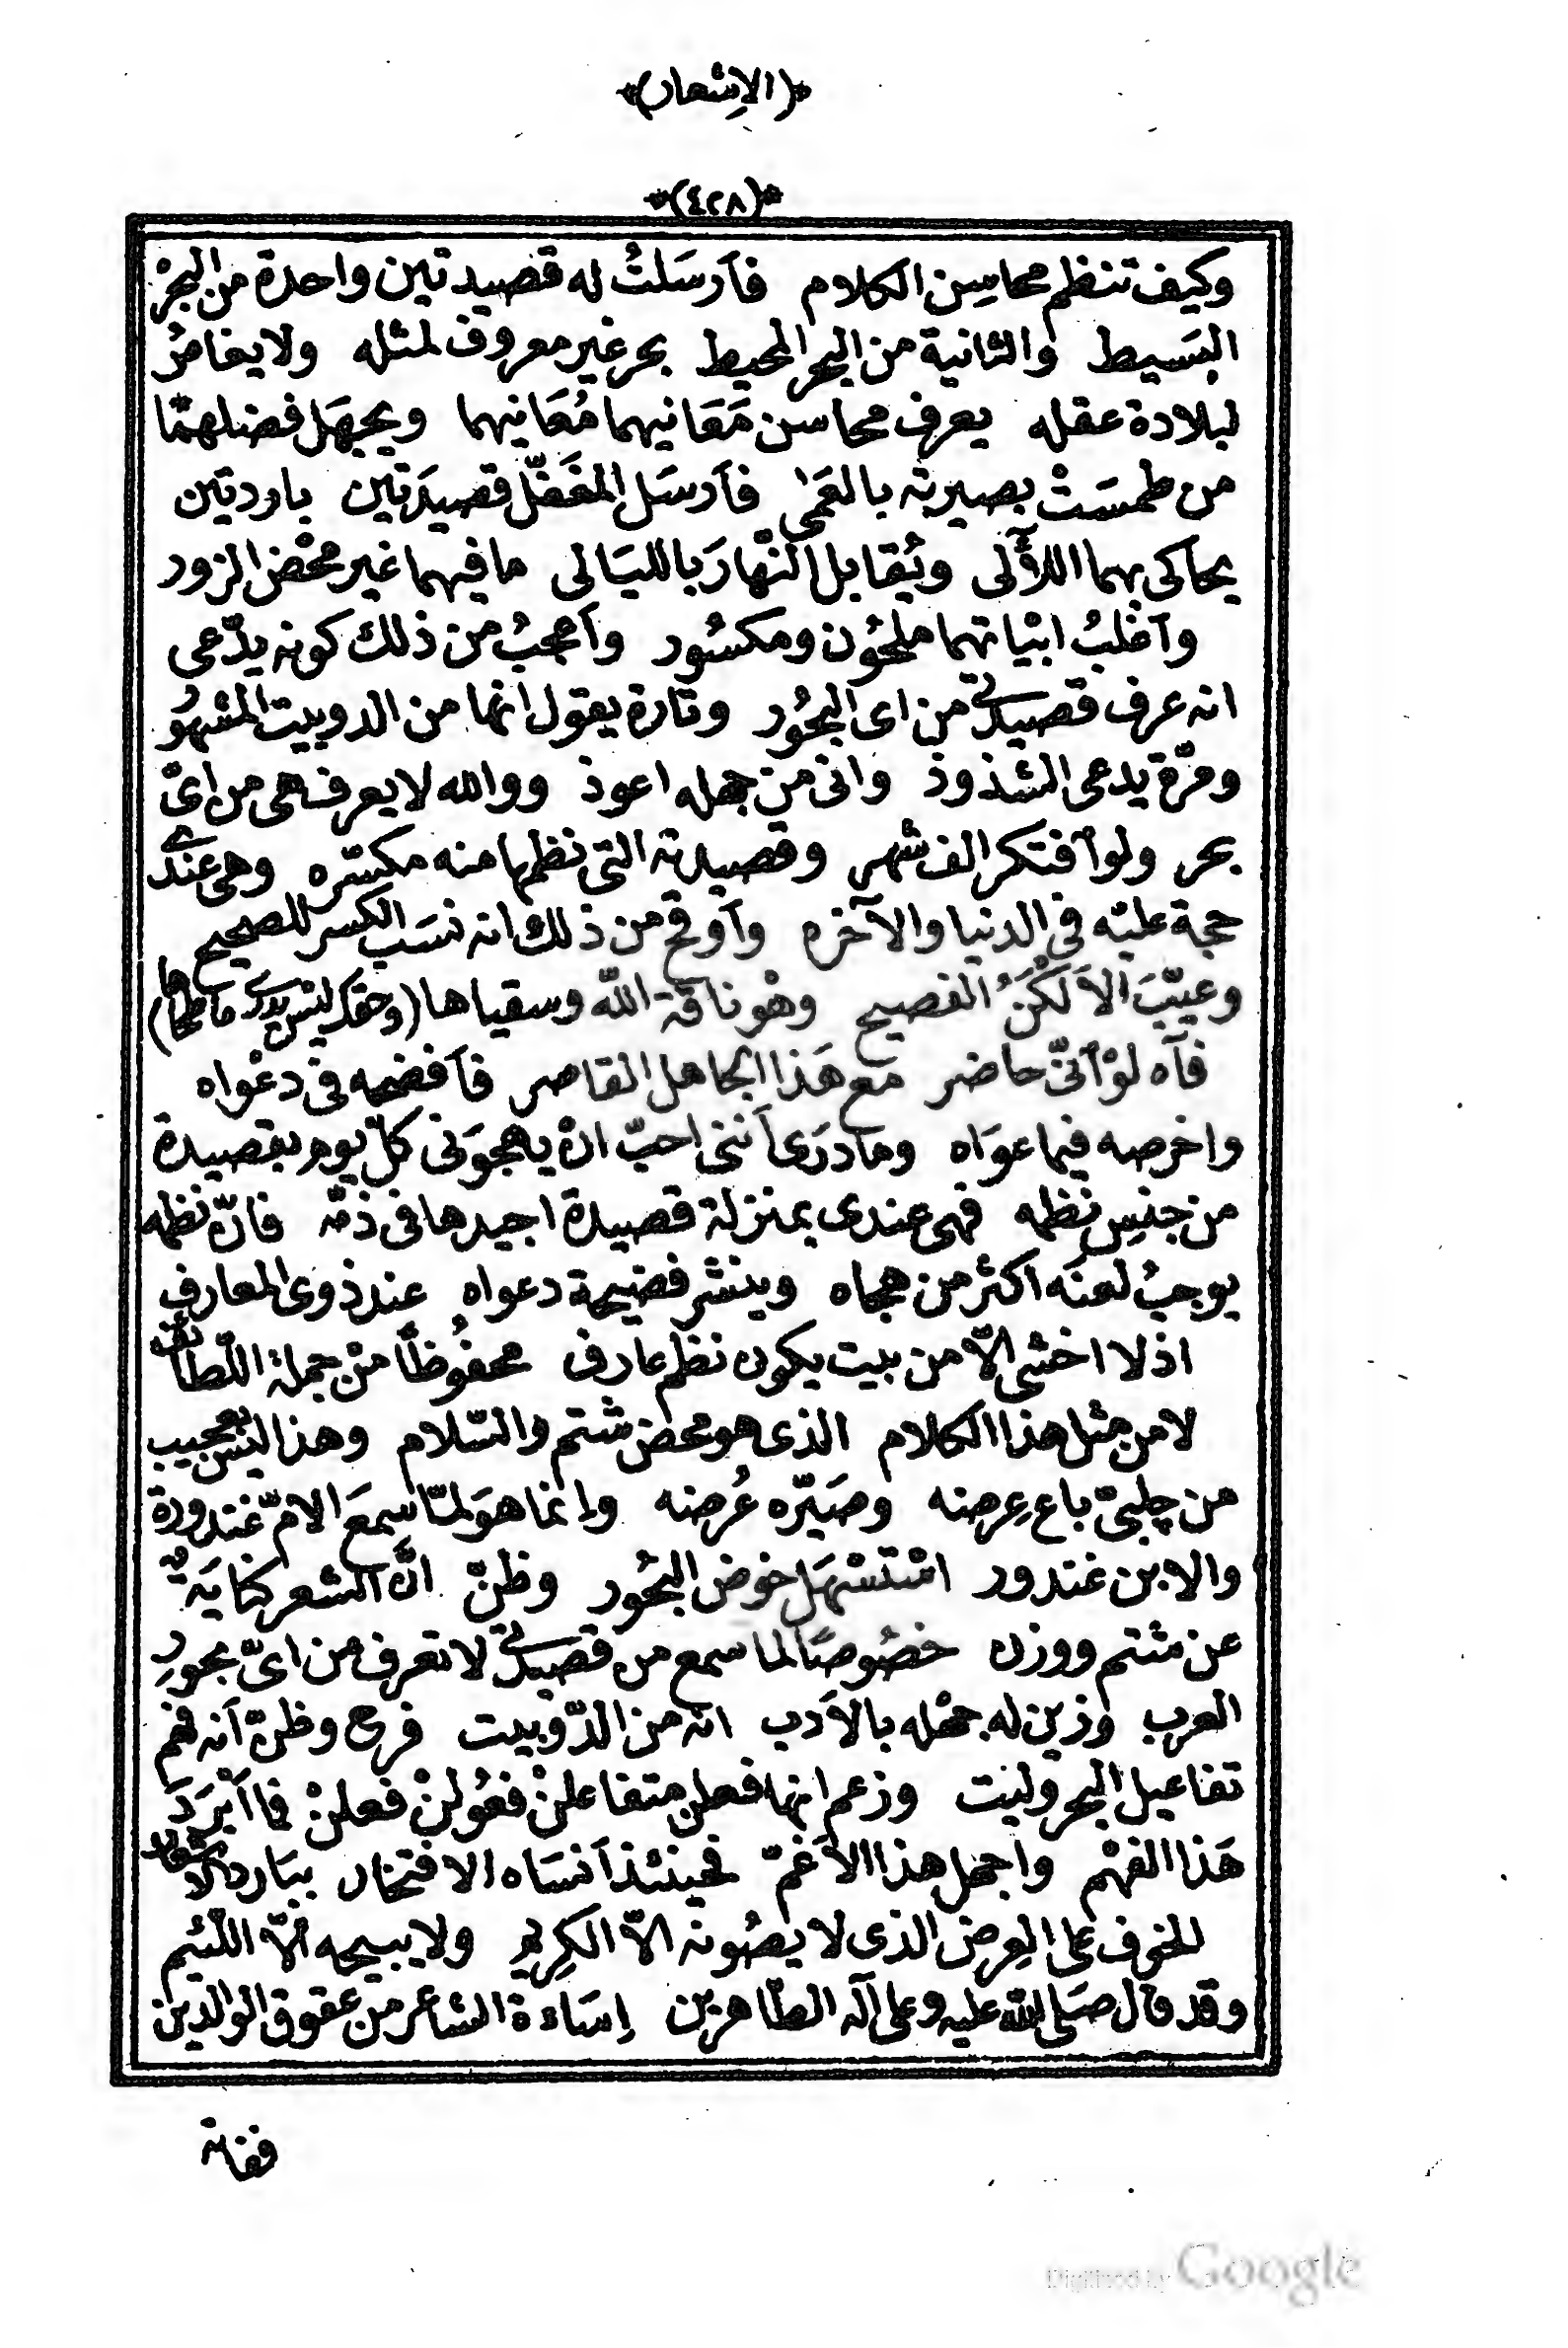 (الإشعار)
(٤٢٨)
وكيف تنظم محاسِن الكلام فأرسَلتُ له قصيدتين واحدة من البحْر
البَسيط والثانية من البحر المحيط بحر غير معروف لمثله ولا يغاصُ
لبلادة عقله يعرف محاسن مَعَانيهما مُعَانيهما ويجهَل فضلهمَا
من طمسَتْ بصيرته بالعَمى فأرسَل المغَفّل قصيدَتين باردتين
يحاكى بهما اللآلى ويُقابل النهَارَ بالليَالى ما فيهما غير محْض الزور
وأغلبُ ابْياتهما ملحُون ومكسُور وأعجبُ من ذلك كونه يدّعى
انه عرف قصيدتى من اى البحُور وتارة يقول انها من الدوبيت المشهُو
ومرّة يدعى الشذوذ وانى من جهله اعوذ ووالله لا يعرف هى من اىّ
بحر ولو أفتكر الف شهر وقصيدته التى نظمها منه مكسّره وهى عندى
حجة عليْه فى الدنيا والآخره وأوقح من ذلك انه نسَب الكسر للصحيح
وعيّبَ الأَلكَنُ الفصيح وهْو ناقة الله وسقياها (وحقك ليْس يدرى ما طحاها)
فآه لوْ أنّى حاضر مع هَذا الجاهل القاصر فأفضحه فى دعْواه
واخرصه فيما عوَاه وما درَى أننى احبّ انْ يهجوَنى كلّ يوم بقصيدة
من جنسِ نظمه فهى عندى بمنزلة قصيدة اجيدها فى ذمّه فانّ نظمه
يوجبُ لعنَه اكثر من هجاه وينشر فضيحة دعواه عند ذوى المعارف
اذ لا اخشى الاّ من بيت يكون نظم عارف محفُوظاً منْ جملة اللّطائف
لا من مثل هذا الكلام الذى هو محض شتم والسّلام وهذا ليْس بعجيب
من چلبىّ باع عِرضه وصَيّره عُرضه وإنما هوَ لمّا سمعَ الامّ غندورة
والابن غندور اسْتسْهَل خوض البحُور وظنّ انَّ الشعر كنايَةٌ
عن شتم ووزن خصُوصًا لما سمع من قصيدتى لا تعرف من اىّ بحورِ
العرب وزين له جهْله بالأدب انه من الدّوبيت فرح وظنّ أنه فهم
تفاعيل البحر وليْت وزعم انها فعلن متفاعلنْ فعُولنْ فعلنْ فما أَبْرَدَ
هَذا الفهْم واجهل هذا الأغمّ فحينئذ أنسَاه الافتخار ببَارد الاشعار
للخوف على العِرض الذى لا يصُونه الاّ الكرِيم ولا يبيحه الاّ اللئيم
وقد قال صَلى الله عليه وعلى آله الطّاهرين إسَاءة الشاعر من عقوق الوالدين
Digitized by Google